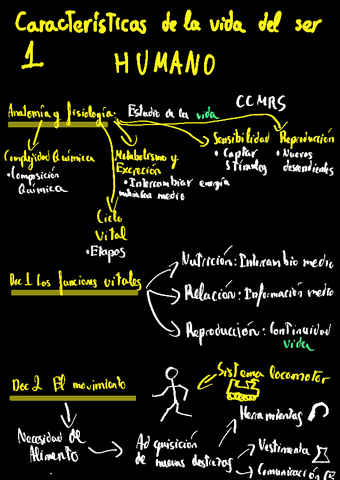 Características de la vida del ser
1 HUMANO
Anatomía y fisiología: Estudio de la vida CCMRS
Complejidad Química
• Composición Química
Metabolismo y Excreción
• Intercambiar energía
medio
Sensibilidad
• Captar Stímulos
Reproducción
• Nuevos descendientes
Ciclo Vital
• Etapas
Doc 1 Las funciones vitales
Nutrición: Intercambio medio
Relación: Información medio
Reproducción: Continuidad vida
Doc 2 El movimiento
Sistema locomotor
Necesidad de Alimento
Adquisición de nuevas destrezas
Herramientas
Vestimenta
Comunicación